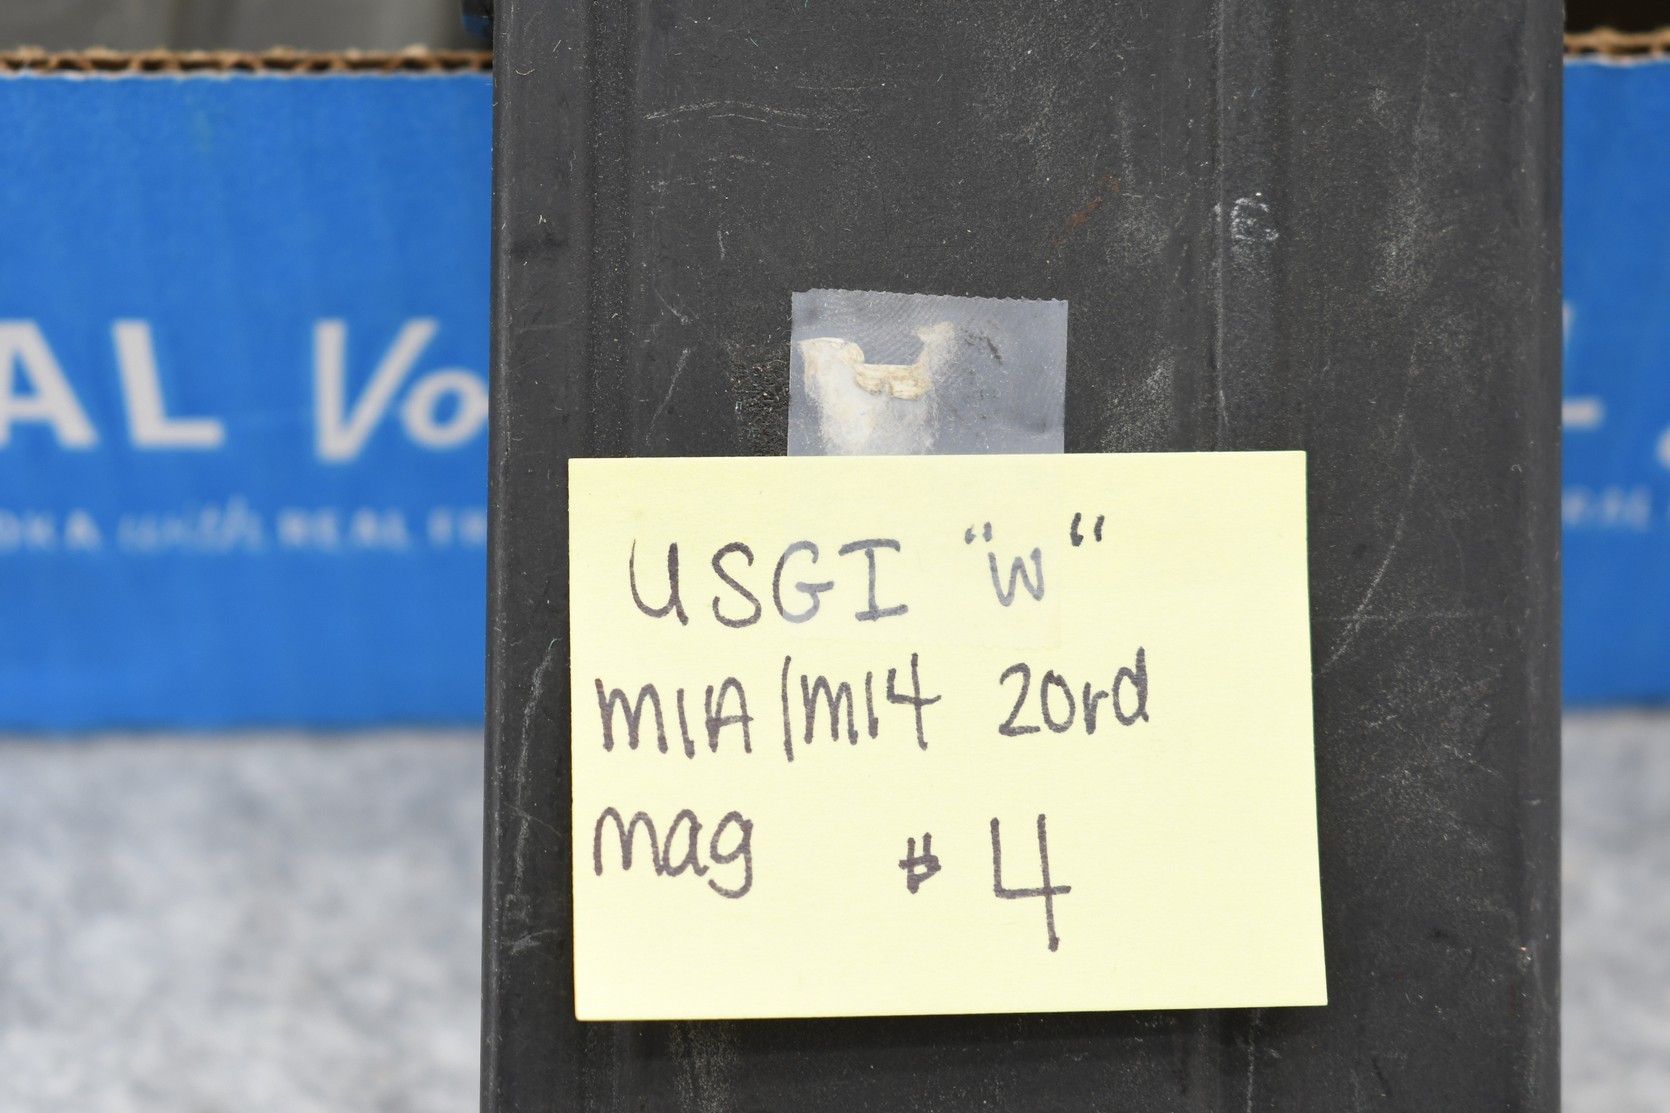 AL Vo
with REAL FR
USGI "W"
M1A/M14 20rd
mag # 4